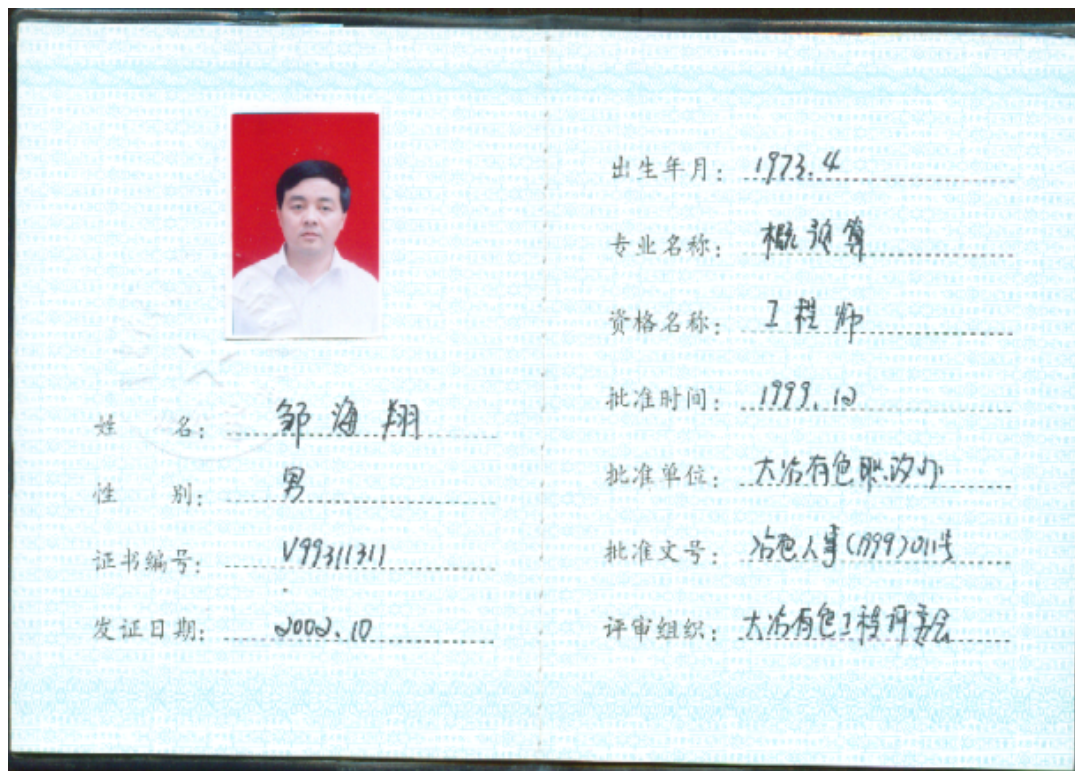 姓 名: 邹海翔
性 别: 男
证书编号: V99311311
发证日期: 2002.10
出生年月: 1973.4
专业名称: 概预算
资格名称: 工程师
批准时间: 1999.12
批准单位: 大冶有色职改办
批准文号: 冶色人事(1999)011号
评审组织: 大冶有色工程评委会